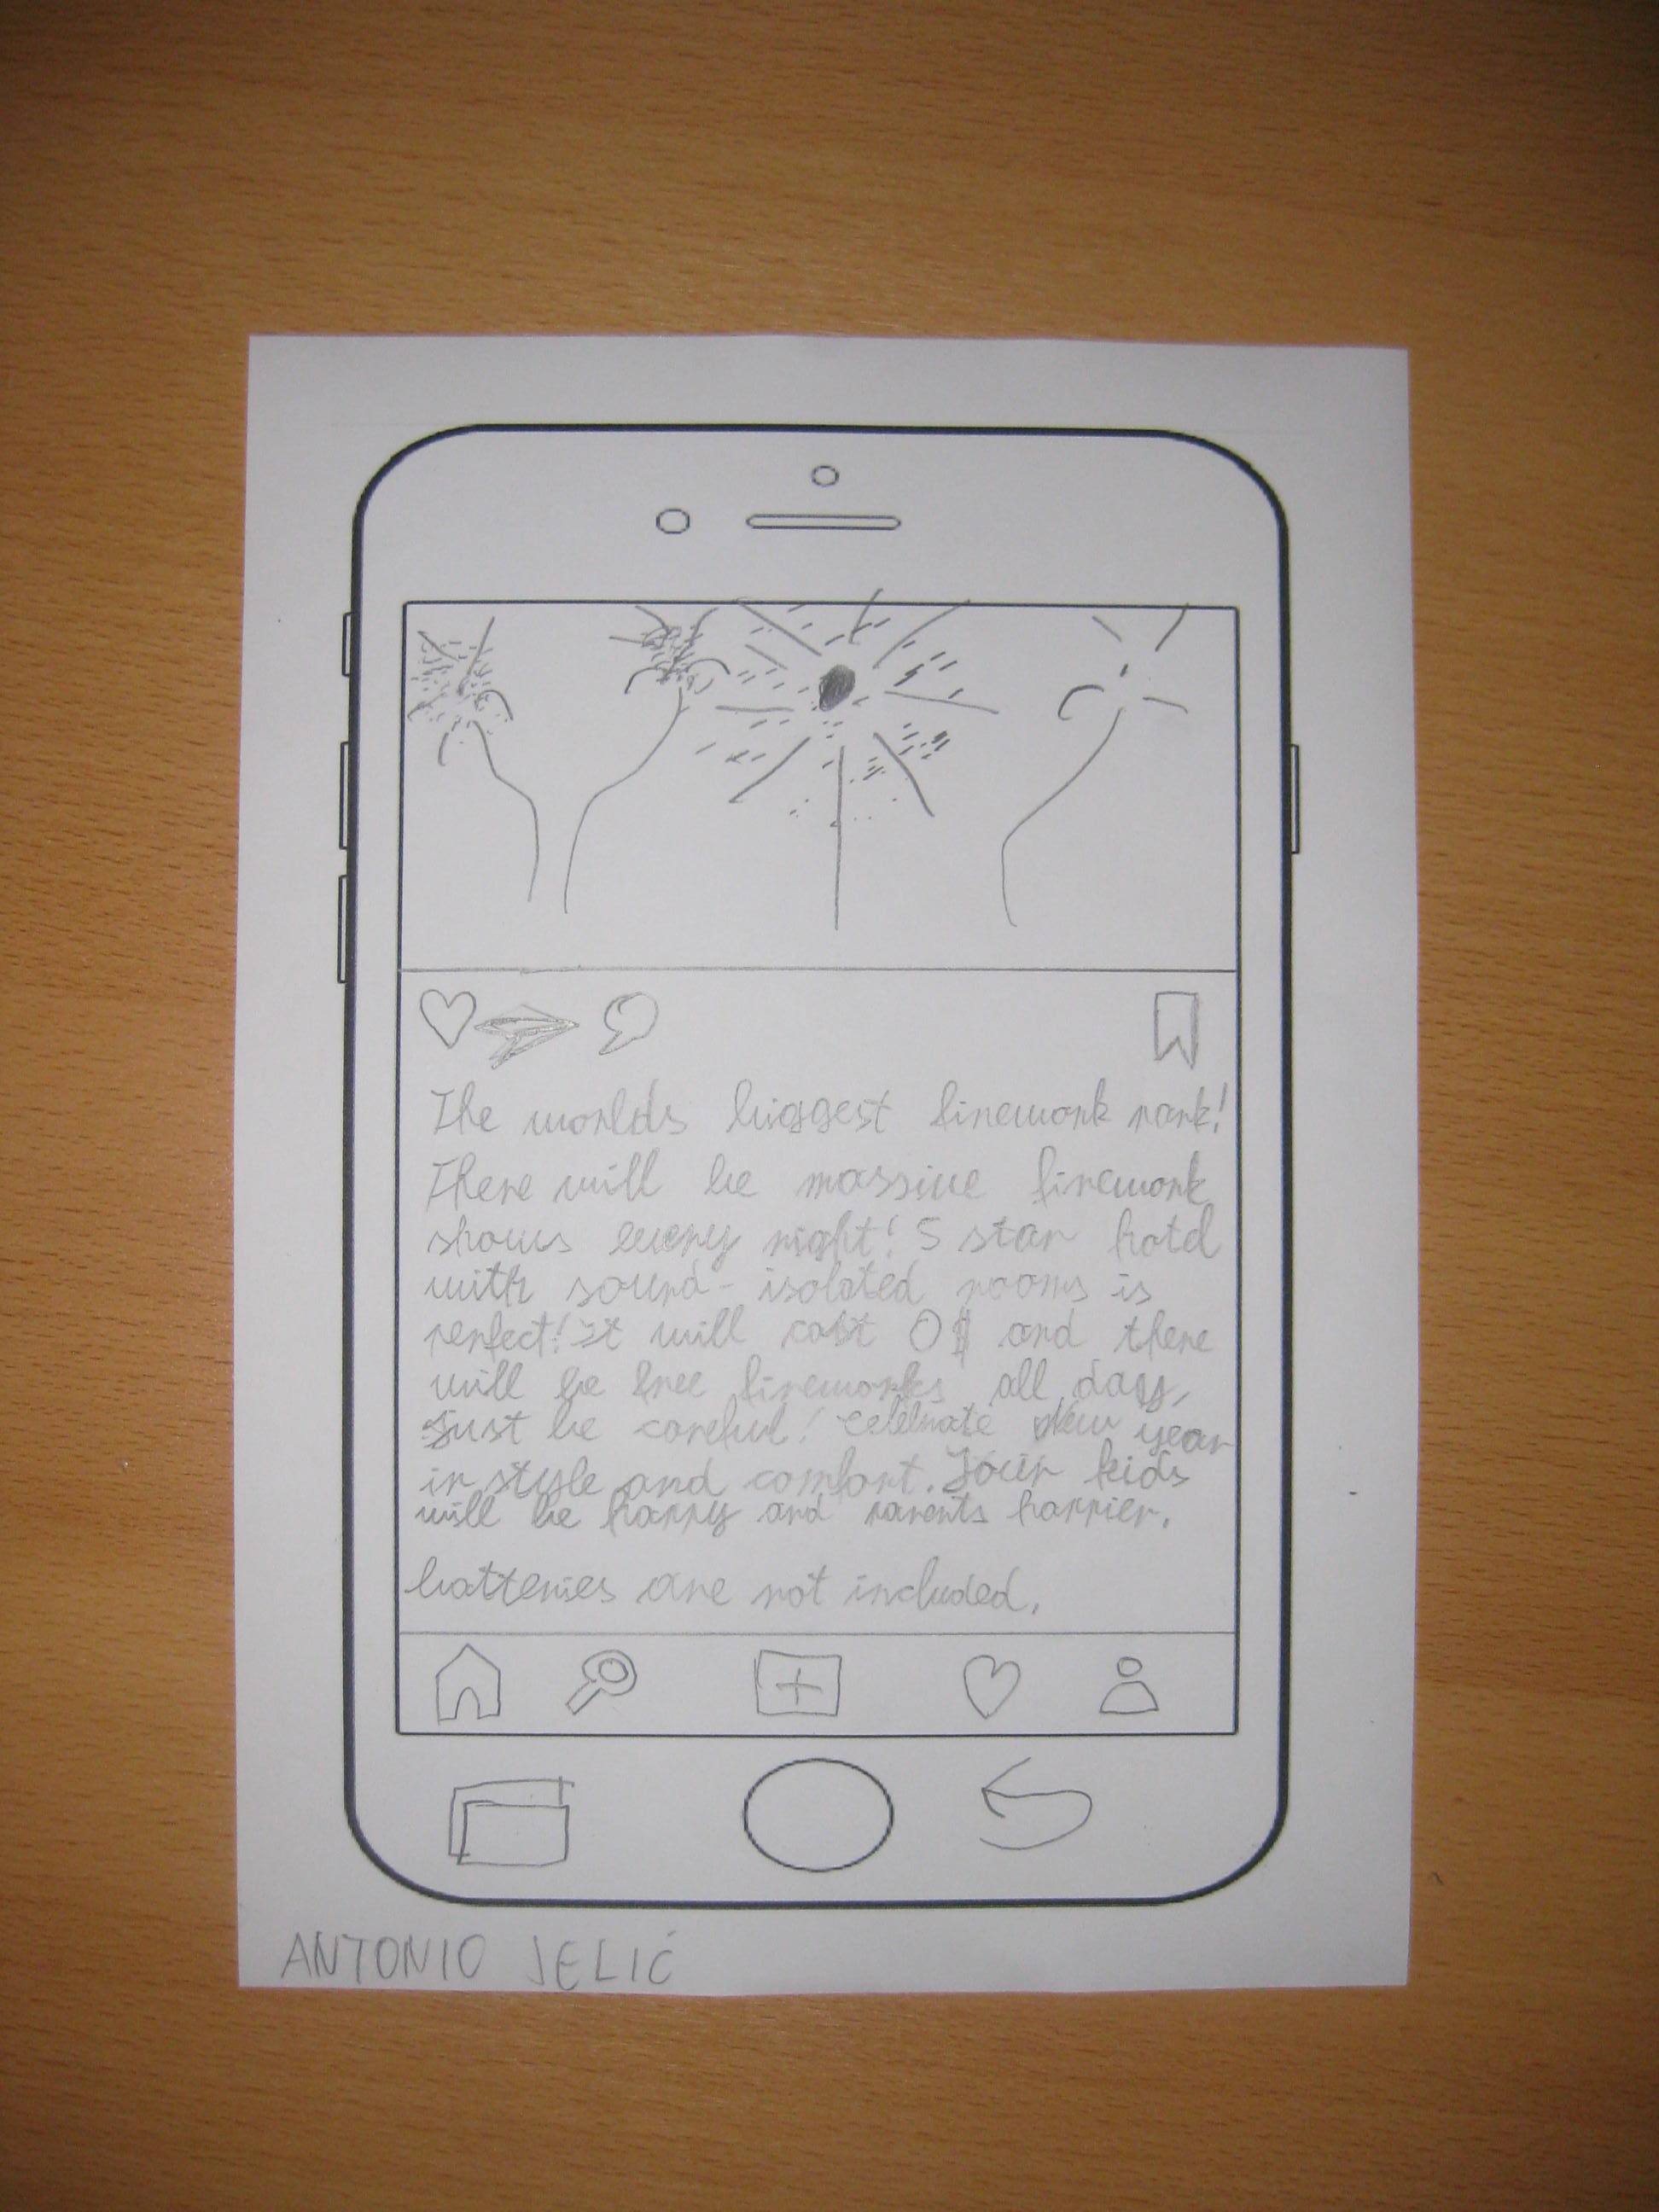 The worlds biggest firework park!
There will be massive firework
shows every night! 5 star hotel
with sound-isolated rooms is
perfect! It will cost 0$ and there
will be free fireworks all day,
just be careful! Celebrate New year
in style and comfort. Your kids
will be happy and parents happier.
batteries are not included.
ANTONIO JELIĆ